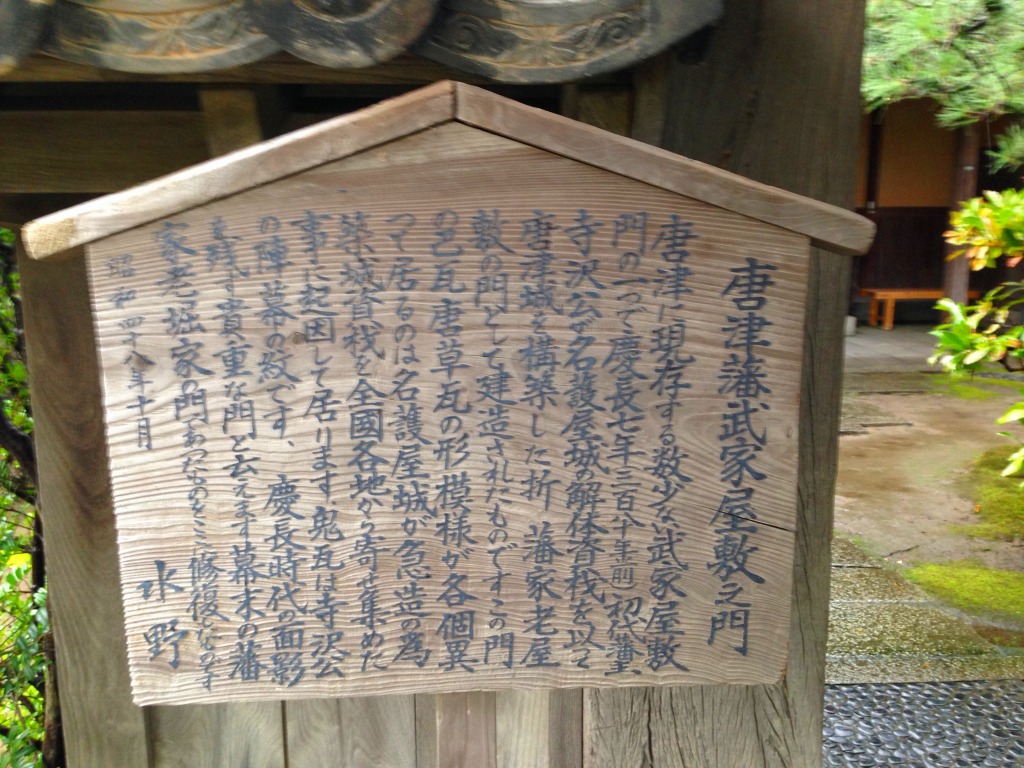 唐津藩武家屋敷之門
唐津に現存する数少ない武家屋敷
門の一つで慶長七年三百八十年前初代藩主
寺沢公が名護屋城の解体資材を以て
唐津城を構築した折 藩家老屋
敷の門として建造されたものですこの門
の巴瓦唐草瓦の形模様が各個異
つて居るのは名護屋城が急造の為
築城資材を全國各地から寄せ集めた
事に起因して居ります鬼瓦は寺沢公
の陣幕の紋です、慶長時代の面影
を残す貴重な門と云えます幕末の藩
家老堀家の門であつたものをここに修復したものです
昭和四十八年十月 水野